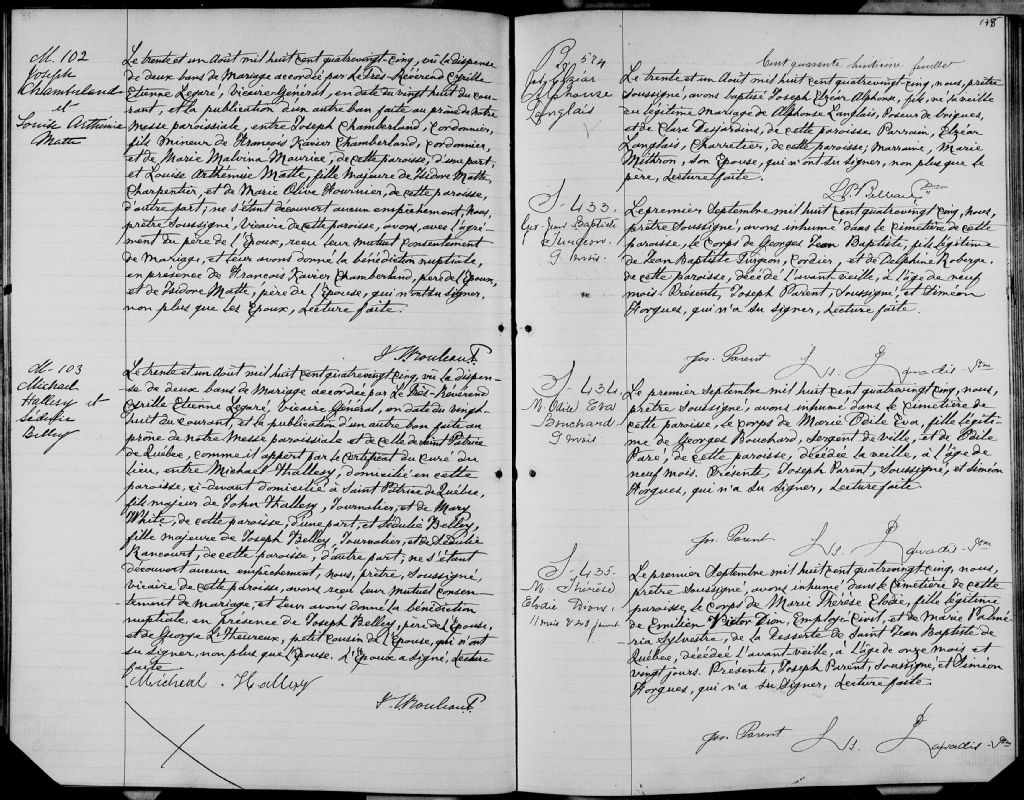 M. 102
Joseph
Chamberland
et
Louise Arthémise
Matte
Le trente et un Août mil huit cent quatrevingt-cinq, vû la dispense
de deux bans de Mariage accordée par Le Très-Révérend Cyrille
Etienne Legaré, Vicaire Général, en date du vingt huit du cou-
rant, et la publication d'un autre ban faite au prône de notre
Messe paroissiale, entre Joseph Chamberland, Cordonnier,
fils mineur de François Xavier Chamberland, cordonnier,
et de Marie Malvina Maurice, de cette paroisse, d'une part,
et Louise Arthémise Matte, fille majeure de Isidore Matte,
Charpentier, et de Marie Olive Fournier, de cette paroisse,
d'autre part; ne s'étant découvert aucun empêchement, Nous,
prêtre soussigné, Vicaire de cette paroisse, avons, avec l'agré-
ment du père de l'Epoux, reçu leur mutuel Consentement
de Mariage, et leur avons donné la bénédiction nuptiale,
en présence de François Xavier Chamberland, père de l'Epoux,
et de Isidore Matte, père de l'Epouse, qui n'ont su signer,
non plus que les Epoux, Lecture faite.
F. X. Rouleau Ptre
M. 103
Michael
Hallesy et
Sédulie
Belley
Le trente et un Août mil huit cent quatrevingt cinq, vû la dispen-
se de deux bans de Mariage accordée par Le Très-Révérend
Cyrille Etienne Legaré, Vicaire Général, en date du vingt-
huit du courant, et la publication d'un autre ban faite au
prône de notre Messe paroissiale et de celle de Saint Patrice
de Québec, comme il appert par le certificat du Curé du
lieu, entre Michael Hallesy, domicilié en cette
paroisse, ci-devant domicilié à Saint Patrice de Québec,
fils majeur de John Hallesy, Journalier, et de Mary
White, de cette paroisse, d'une part; et Sédulie Belley,
fille majeure de Joseph Belley, Journalier, et de Sédulie
Rancourt, de cette paroisse, d'autre part; ne s'étant
découvert aucun empêchement, nous, prêtre, soussigné,
vicaire de cette paroisse, avons reçu leur mutuel consen-
tement de mariage, et leur avons donné la bénédiction
nuptiale, en présence de Joseph Belley, père de l'Epouse,
et de George L'Heureux, petit cousin de l'Epouse, qui n'ont
su signer, non plus que l'Epouse. L'Epoux a signé, Lecture
faite.
Micheal . Hallesy
F. X. Rouleau Ptre
148
Cent quarante huitième feuillet
B. 574
Jos. Elzéar
Alphonse
Langlais
Le trente et un Août mil huit cent quatrevingt cinq, nous, prêtre
soussigné, avons baptisé Joseph Elzéar Alphonse, fils, né la veille
du légitime mariage de Alphonse Langlais, Poseur de briques,
et de Clara Desjardins, de cette paroisse, Parrain, Elzéar
Langlais, Charretier, de cette paroisse; marraine, Marie
Mithron, son Epouse, qui n'ont su signer, non plus que le
père, Lecture faite.
S. 433.
Geo. Jean Baptiste
Turgeon.
9 mois.
Le premier Septembre mil huit cent quatrevingt cinq, nous,
prêtre soussigné, avons inhumé dans le cimetière de cette
paroisse, le corps de Georges Jean Baptiste, fils légitime
de Jean Baptiste Turgeon, cordier, et de Delphine Roberge,
de cette paroisse, décédé l'avant veille, à l'âge de neuf
mois. Présents, Joseph Parent, soussigné, et Siméon
Forgues, qui n'a su signer, Lecture faite.
Jos. Parent
S. 434.
M. Odile Eva
Bouchard
9 mois
Le premier Septembre mil huit cent quatrevingt cinq, nous,
prêtre soussigné, avons inhumé dans le cimetière de
cette paroisse, le corps de Marie Odile Eva, fille légiti-
me de Georges Bouchard, Sergent de ville, et de Odile
Paré, de cette paroisse, décédée la veille, à l'âge de
neuf mois. Présents, Joseph Parent, soussigné, et Siméon
Forgues, qui n'a su signer, Lecture faite.
Jos. Parent
S. 435.
M. Thérèse
Elodie Dion.
11 mois & 20 jours.
Le premier Septembre mil huit cent quatrevingt cinq, nous,
prêtre soussigné, avons inhumé dans le cimetière de cette
paroisse, le corps de Marie Thérèse Elodie, fille légitime
de Emilien Victor Dion, Employé Civil, et de Marie Palmé-
ria Sylvestre, de la Desserte de Saint Jean Baptiste de
Québec, décédée l'avant-veille, à l'âge de onze mois et
vingt jours. Présents, Joseph Parent, soussigné, et Siméon
Forgues, qui n'a su signer, Lecture faite.
Jos. Parent